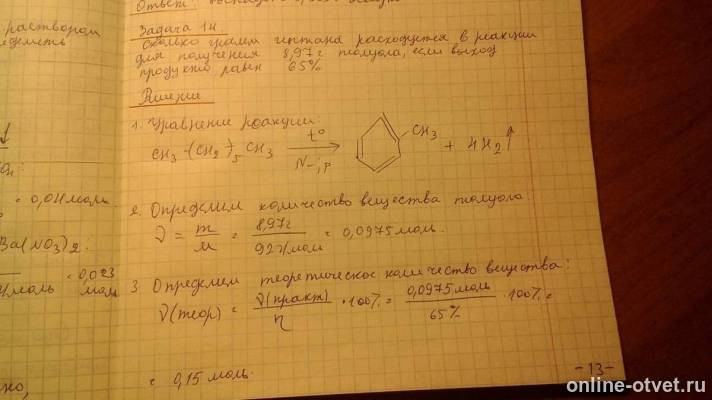 раствором
Задача 14
Сколько грамм гептана расходуется в реакции
для получения 8,97г толуола, если выход
продукта равен 65%
Решение
1. Уравнение реакции:
CH3-(CH2)5CH3 t° Ni, p CH3 + 4H2↑
= 0,011моль
2. Определим количество вещества толуола:
ν = m/M = 8,97г / 92г/моль = 0,0975моль.
Ba(NO3)2:
= 0,023 моль
3. Определим теоретическое количество вещества:
ν(теор) = ν(практ)/η · 100% = 0,0975моль/65% · 100% =
= 0,15 моль.
-13-
online-otvet.ru